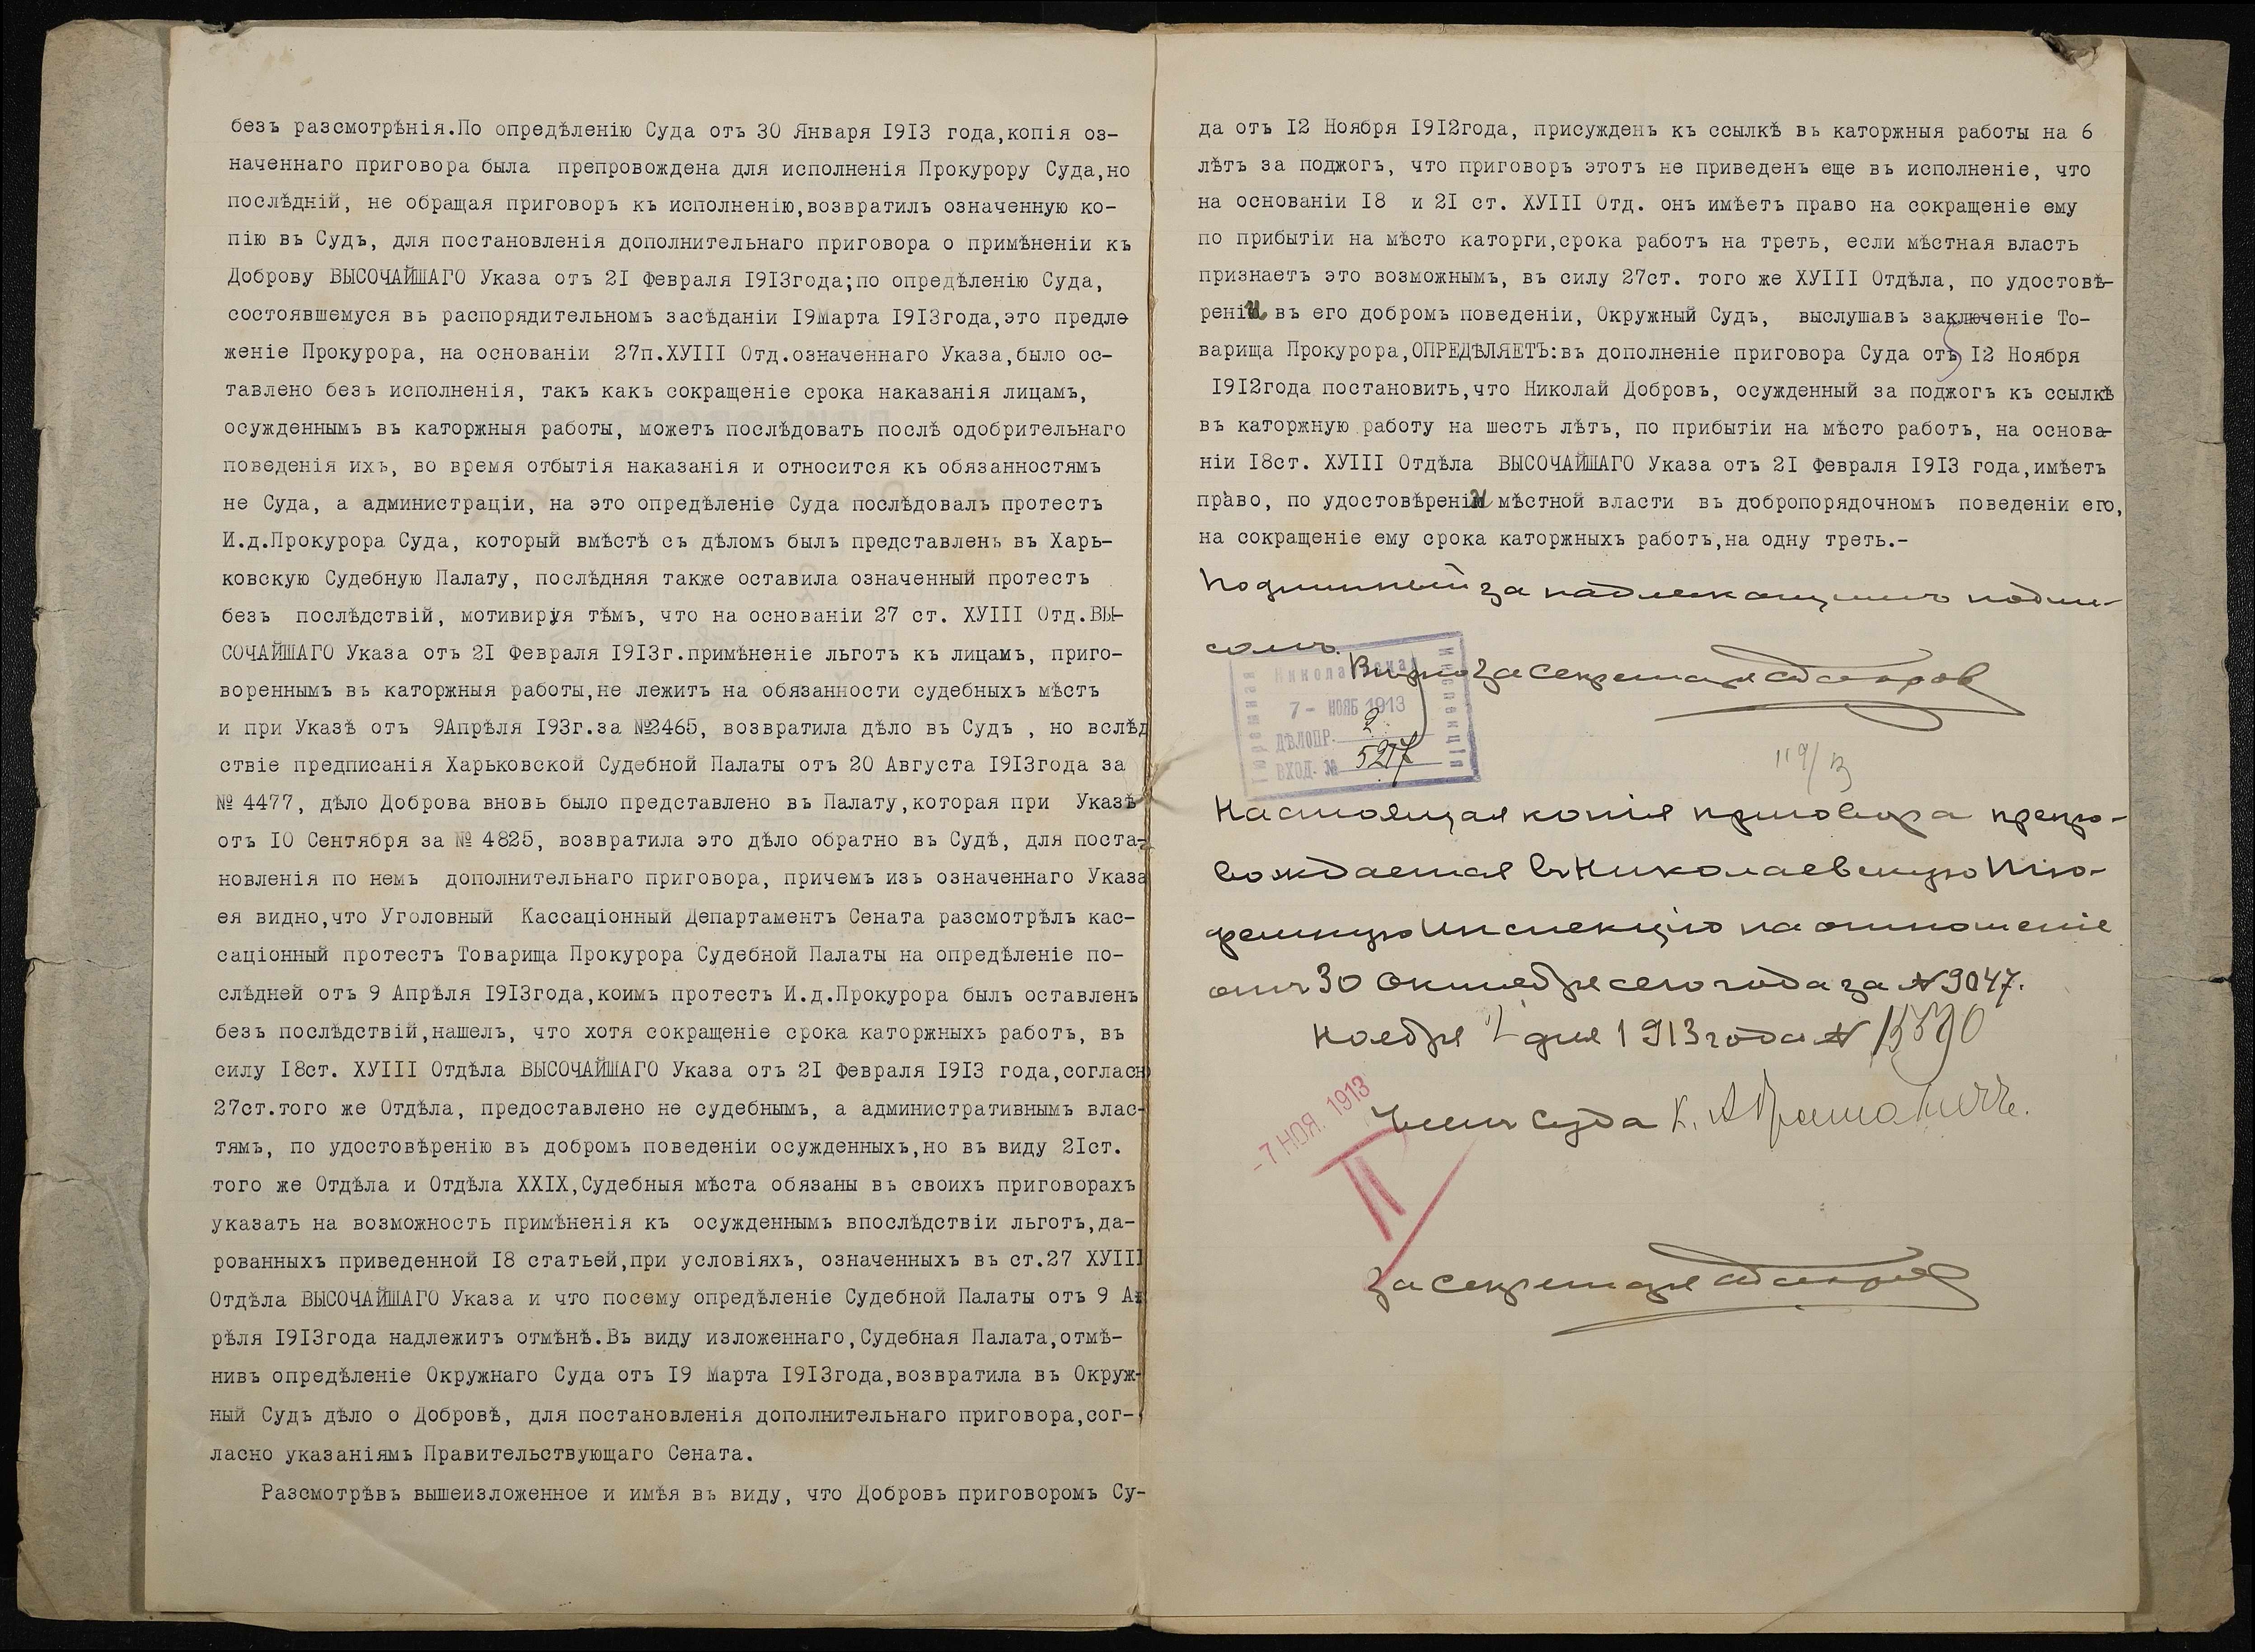 безъ разсмотрѣнія.По опредѣленію Суда отъ 30 Января I9I3 года,копія оз-
наченнаго приговора была препровождена для исполненія Прокурору Суда,но
послѣдній, не обращая приговоръ къ исполненію,возвратилъ означенную ко-
пію въ Судъ, для постановленія дополнительнаго приговора о примѣненіи къ
Доброву ВЫСОЧАЙШАГО Указа отъ 2I Февраля I9I3года;по опредѣленію Суда,
состоявшемуся въ распорядительномъ засѣданіи I9Марта I9I3года,это предло
женіе Прокурора, на основаніи 27п.ХУІІІ Отд.означеннаго Указа,было ос-
тавлено безъ исполненія, такъ какъ сокращеніе срока наказанія лицамъ,
осужденнымъ въ каторжныя работы, можетъ послѣдовать послѣ одобрительнаго
поведенія ихъ, во время отбытія наказанія и относится къ обязанностямъ
не Суда, а администраціи, на это опредѣленіе Суда послѣдовалъ протестъ
И.д.Прокурора Суда, который вмѣстѣ съ дѣломъ былъ представленъ въ Харь-
ковскую Судебную Палату, послѣдняя также оставила означенный протестъ
безъ послѣдствій, мотивируя тѣмъ, что на основаніи 27 ст. ХУІІІ Отд.ВЫ-
СОЧАЙШАГО Указа отъ 2I Февраля I9I3г.примѣненіе льготъ къ лицамъ, приго-
вореннымъ въ каторжныя работы,не лежитъ на обязанности судебныхъ мѣстъ
и при Указѣ отъ 9Апрѣля I93г.за №2465, возвратила дѣло въ Судъ , но вслѣд
ствіе предписанія Харьковской Судебной Палаты отъ 20 Августа I9I3года за
№ 4477, дѣло Доброва вновь было представлено въ Палату,которая при Указѣ
отъ I0 Сентября за № 4825, возвратила это дѣло обратно въ Судѣ, для поста-
новленія по немъ дополнительнаго приговора, причемъ изъ означеннаго Указа
ея видно,что Уголовный Кассаціонный Департаментъ Сената разсмотрѣлъ кас-
саціонный протестъ Товарища Прокурора Судебной Палаты на опредѣленіе по-
слѣдней отъ 9 Апрѣля I9I3года,коимъ протестъ И.д.Прокурора былъ оставленъ
безъ послѣдствій,нашелъ, что хотя сокращеніе срока каторжныхъ работъ, въ
силу I8ст. ХУІІІ Отдѣла ВЫСОЧАЙШАГО Указа отъ 2I Февраля I9I3 года,согласно
27ст.того же Отдѣла, предоставлено не судебнымъ, а административнымъ влас-
тямъ, по удостовѣренію въ добромъ поведеніи осужденныхъ,но въ виду 2Iст.
того же Отдѣла и Отдѣла XXIX,Судебныя мѣста обязаны въ своихъ приговорахъ
указать на возможность примѣненія къ осужденнымъ впослѣдствіи льготъ,да-
рованныхъ приведенной I8 статьей,при условіяхъ, означенныхъ въ ст.27 ХУІІІ
Отдѣла ВЫСОЧАЙШАГО Указа и что посему опредѣленіе Судебной Палаты отъ 9 Ап
рѣля I9I3года надлежитъ отмѣнѣ.Въ виду изложеннаго,Судебная Палата,отмѣ-
нивъ опредѣленіе Окружнаго Суда отъ I9 Марта I9I3года,возвратила въ Окруж-
ный Судъ дѣло о Добровѣ, для постановленія дополнительнаго приговора,сог-
ласно указаніямъ Правительствующаго Сената.
Разсмотрѣвъ вышеизложенное и имѣя въ виду, что Добровъ приговоромъ Су-
да отъ I2 Ноября I9I2года, присужденъ къ ссылкѣ въ каторжныя работы на 6
лѣтъ за поджогъ, что приговоръ этотъ не приведенъ еще въ исполненіе, что
на основаніи I8 и 2I ст. ХУІІІ Отд. онъ имѣетъ право на сокращеніе ему
по прибытіи на мѣсто каторги,срока работъ на треть, если мѣстная власть
признаетъ это возможнымъ, въ силу 27ст. того же ХУІІІ Отдѣла, по удостовѣ-
реніи въ его добромъ поведеніи, Окружный Судъ, выслушавъ заключеніе То-
варища Прокурора,ОПРЕДѢЛЯЕТЪ:въ дополненіе приговора Суда отъ I2 Ноября
I9I2года постановить,что Николай Добровъ, осужденный за поджогъ къ ссылкѣ
въ каторжную работу на шесть лѣтъ, по прибытіи на мѣсто работъ, на основа-
ніи I8ст. ХУІІІ Отдѣла ВЫСОЧАЙШАГО Указа отъ 2I Февраля I9I3 года,имѣетъ
право, по удостовѣреніи мѣстной власти въ добропорядочномъ поведеніи его,
на сокращеніе ему срока каторжныхъ работъ,на одну треть.-
Подлинный за надлежащимъ подпи-
сомъ.
Вѣрно: За Секретаря
Николаевская
Тюремная
Инспекція
7 - НОЯБ 1913
ДѢЛОПР. 2
ВХОД. № 5217
119/13
Настоящая копія приговора препро-
вождается въ Николаевскую Тю-
ремную Инспекцію на отношеніе
отъ 30 Октября сего года за № 9047.
Ноября 2 дня 1913 года № 15590
Членъ Суда К.
- 7 НОЯ. 1913
II
За Секретаря